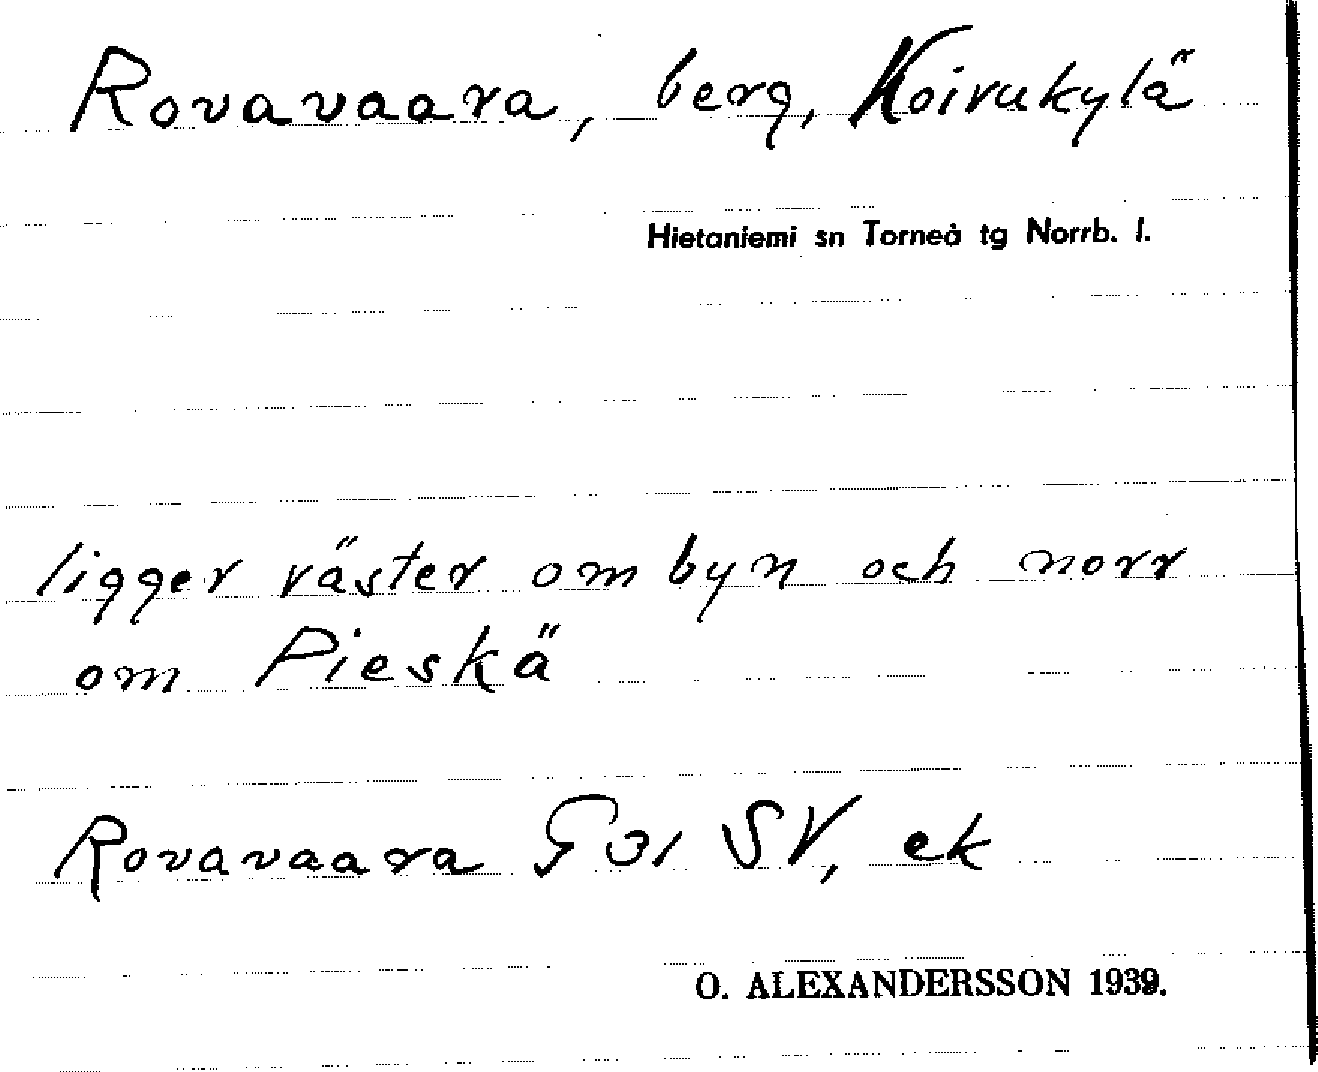 Rovavaara, berg, Koivukylä
Hietaniemi sn Torneå tg Norrb. l.
ligger väster om byn och norr
om Pieskä
Rovavaara G 31 SV, ek
O. ALEXANDERSSON 1939.